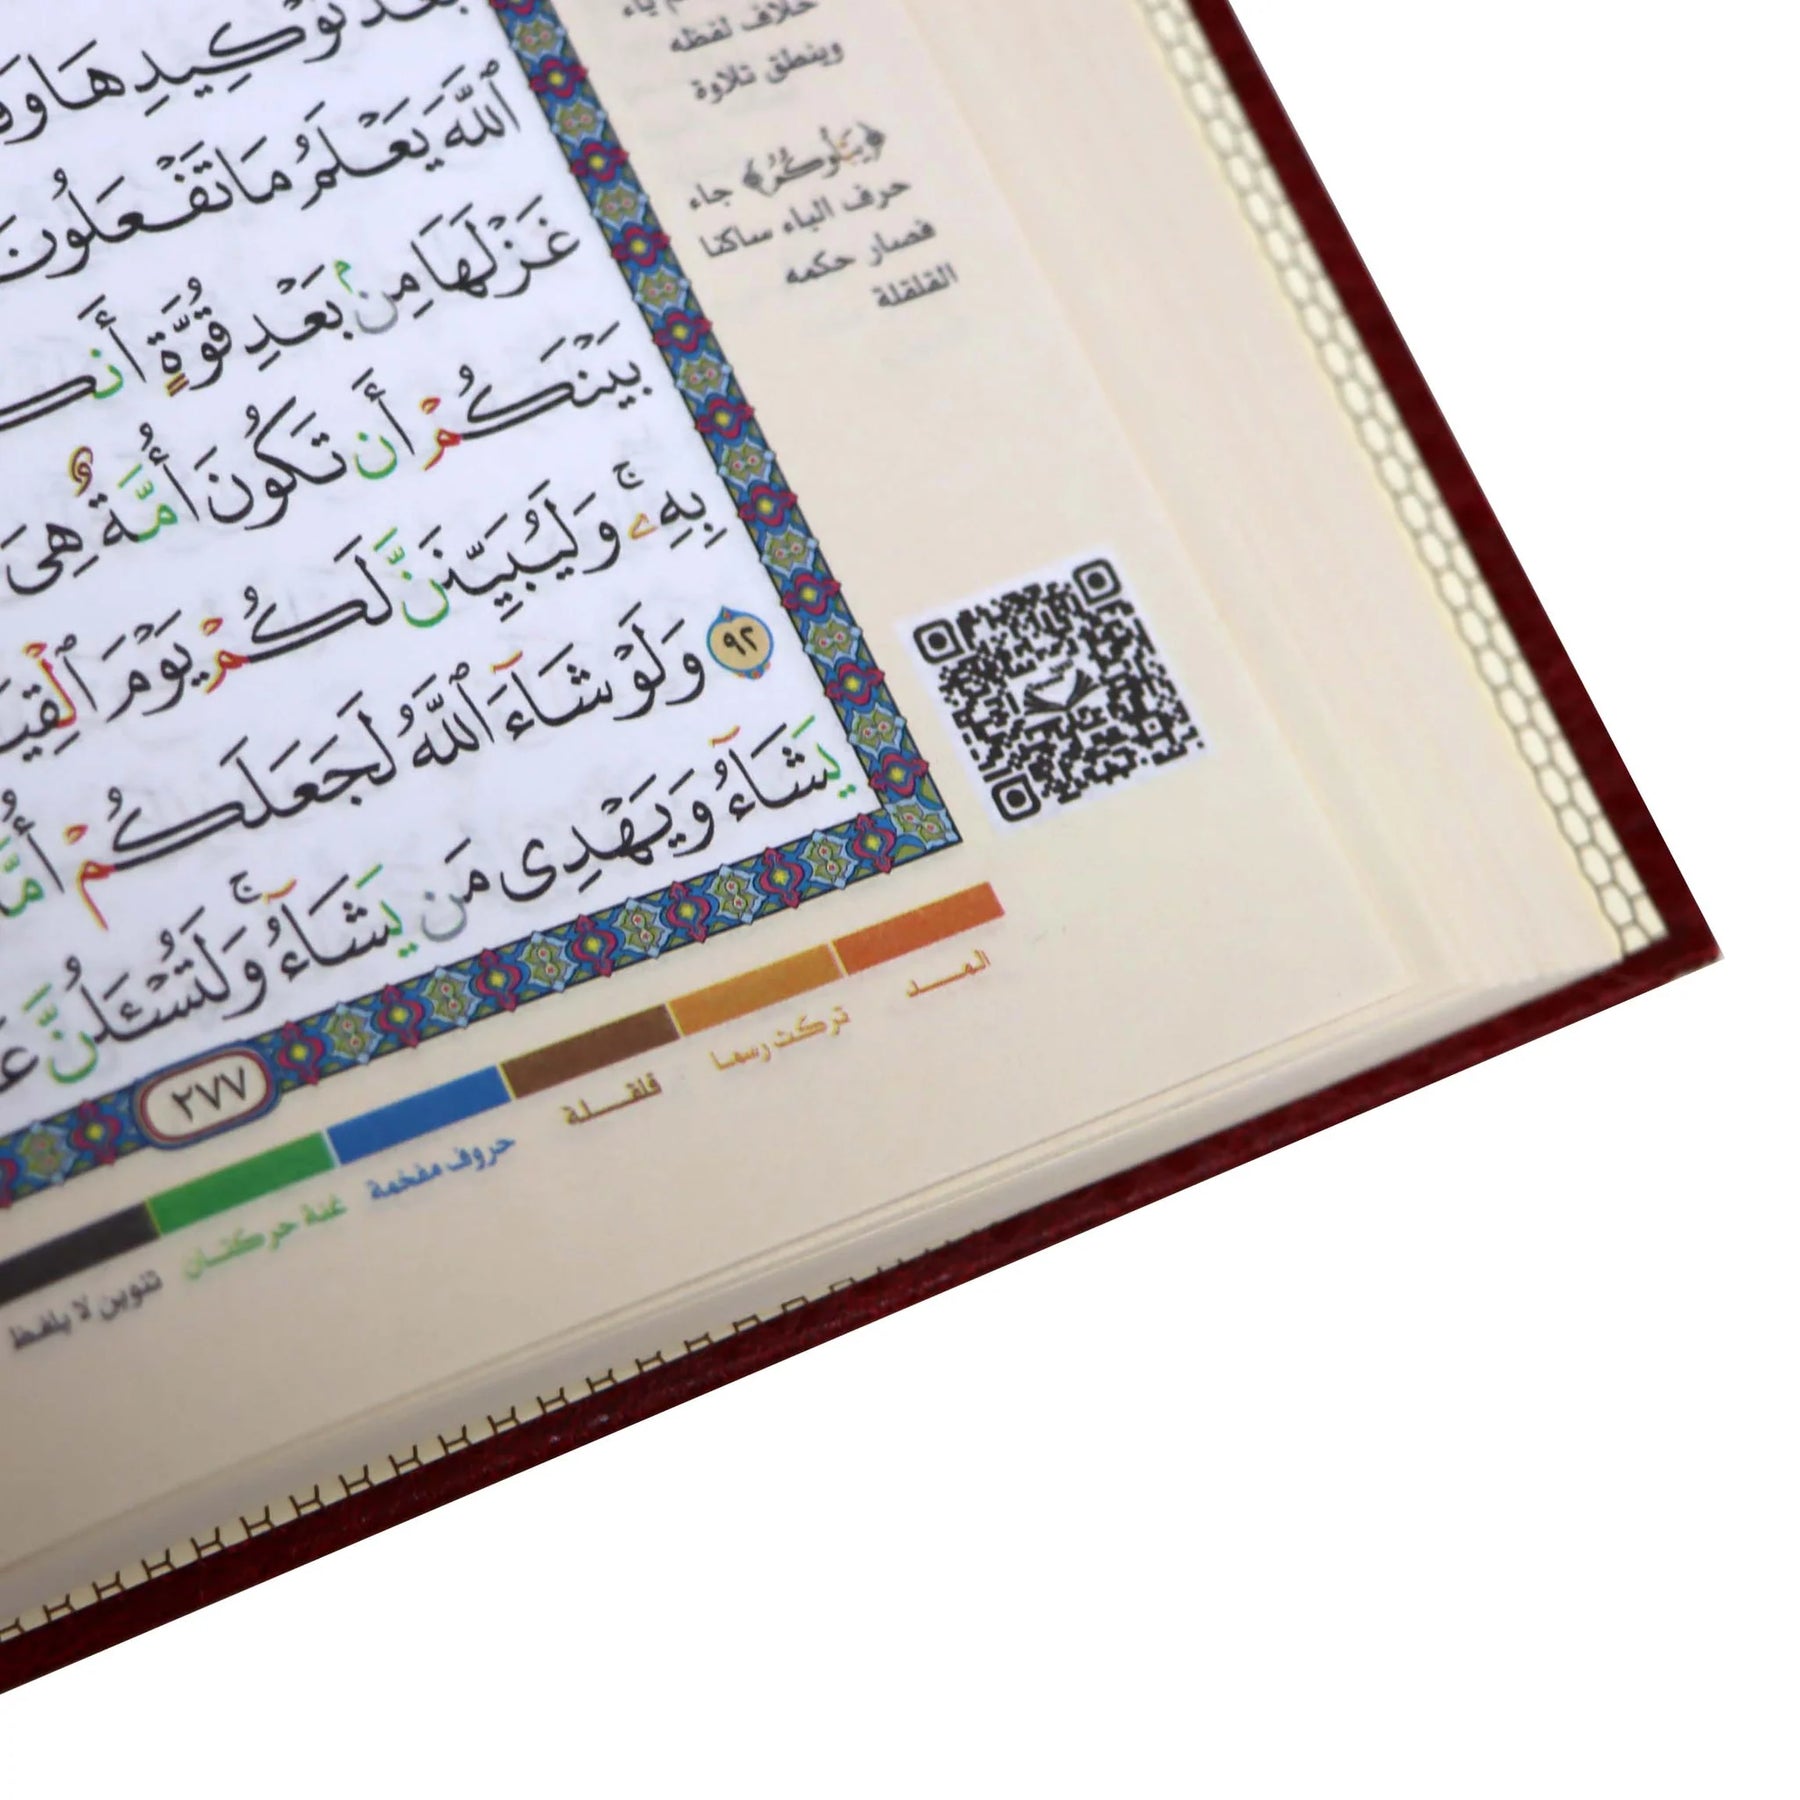 بَعْدَ تَوْكِيدِهَا
ٱللَّهَ يَعْلَمُ مَا تَفْعَلُونَ
غَزْلَهَا مِنۢ بَعْدِ قُوَّةٍ
بَيْنَكُمْ أَن تَكُونَ أُمَّةٌ هِىَ
بِهِۦ ۚ وَلَيُبَيِّنَنَّ لَكُمْ يَوْمَ
٩٢ وَلَوْ شَآءَ ٱللَّهُ لَجَعَلَكُمْ
يَشَآءُ وَيَهْدِى مَن يَشَآءُ ۚ وَلَتُسْـَٔلُنَّ
٢٧٧
خلاف لفظه
وينطق تلاوة
﴿يَبْلُوكُمُ﴾ جاء
حرف الباء ساكنا
فصار حكمه
القلقلة
المـــد
تركت رسما
قلقـــلة
حروف مفخمة
غنة حركتـان
تنوين لا يلفظ